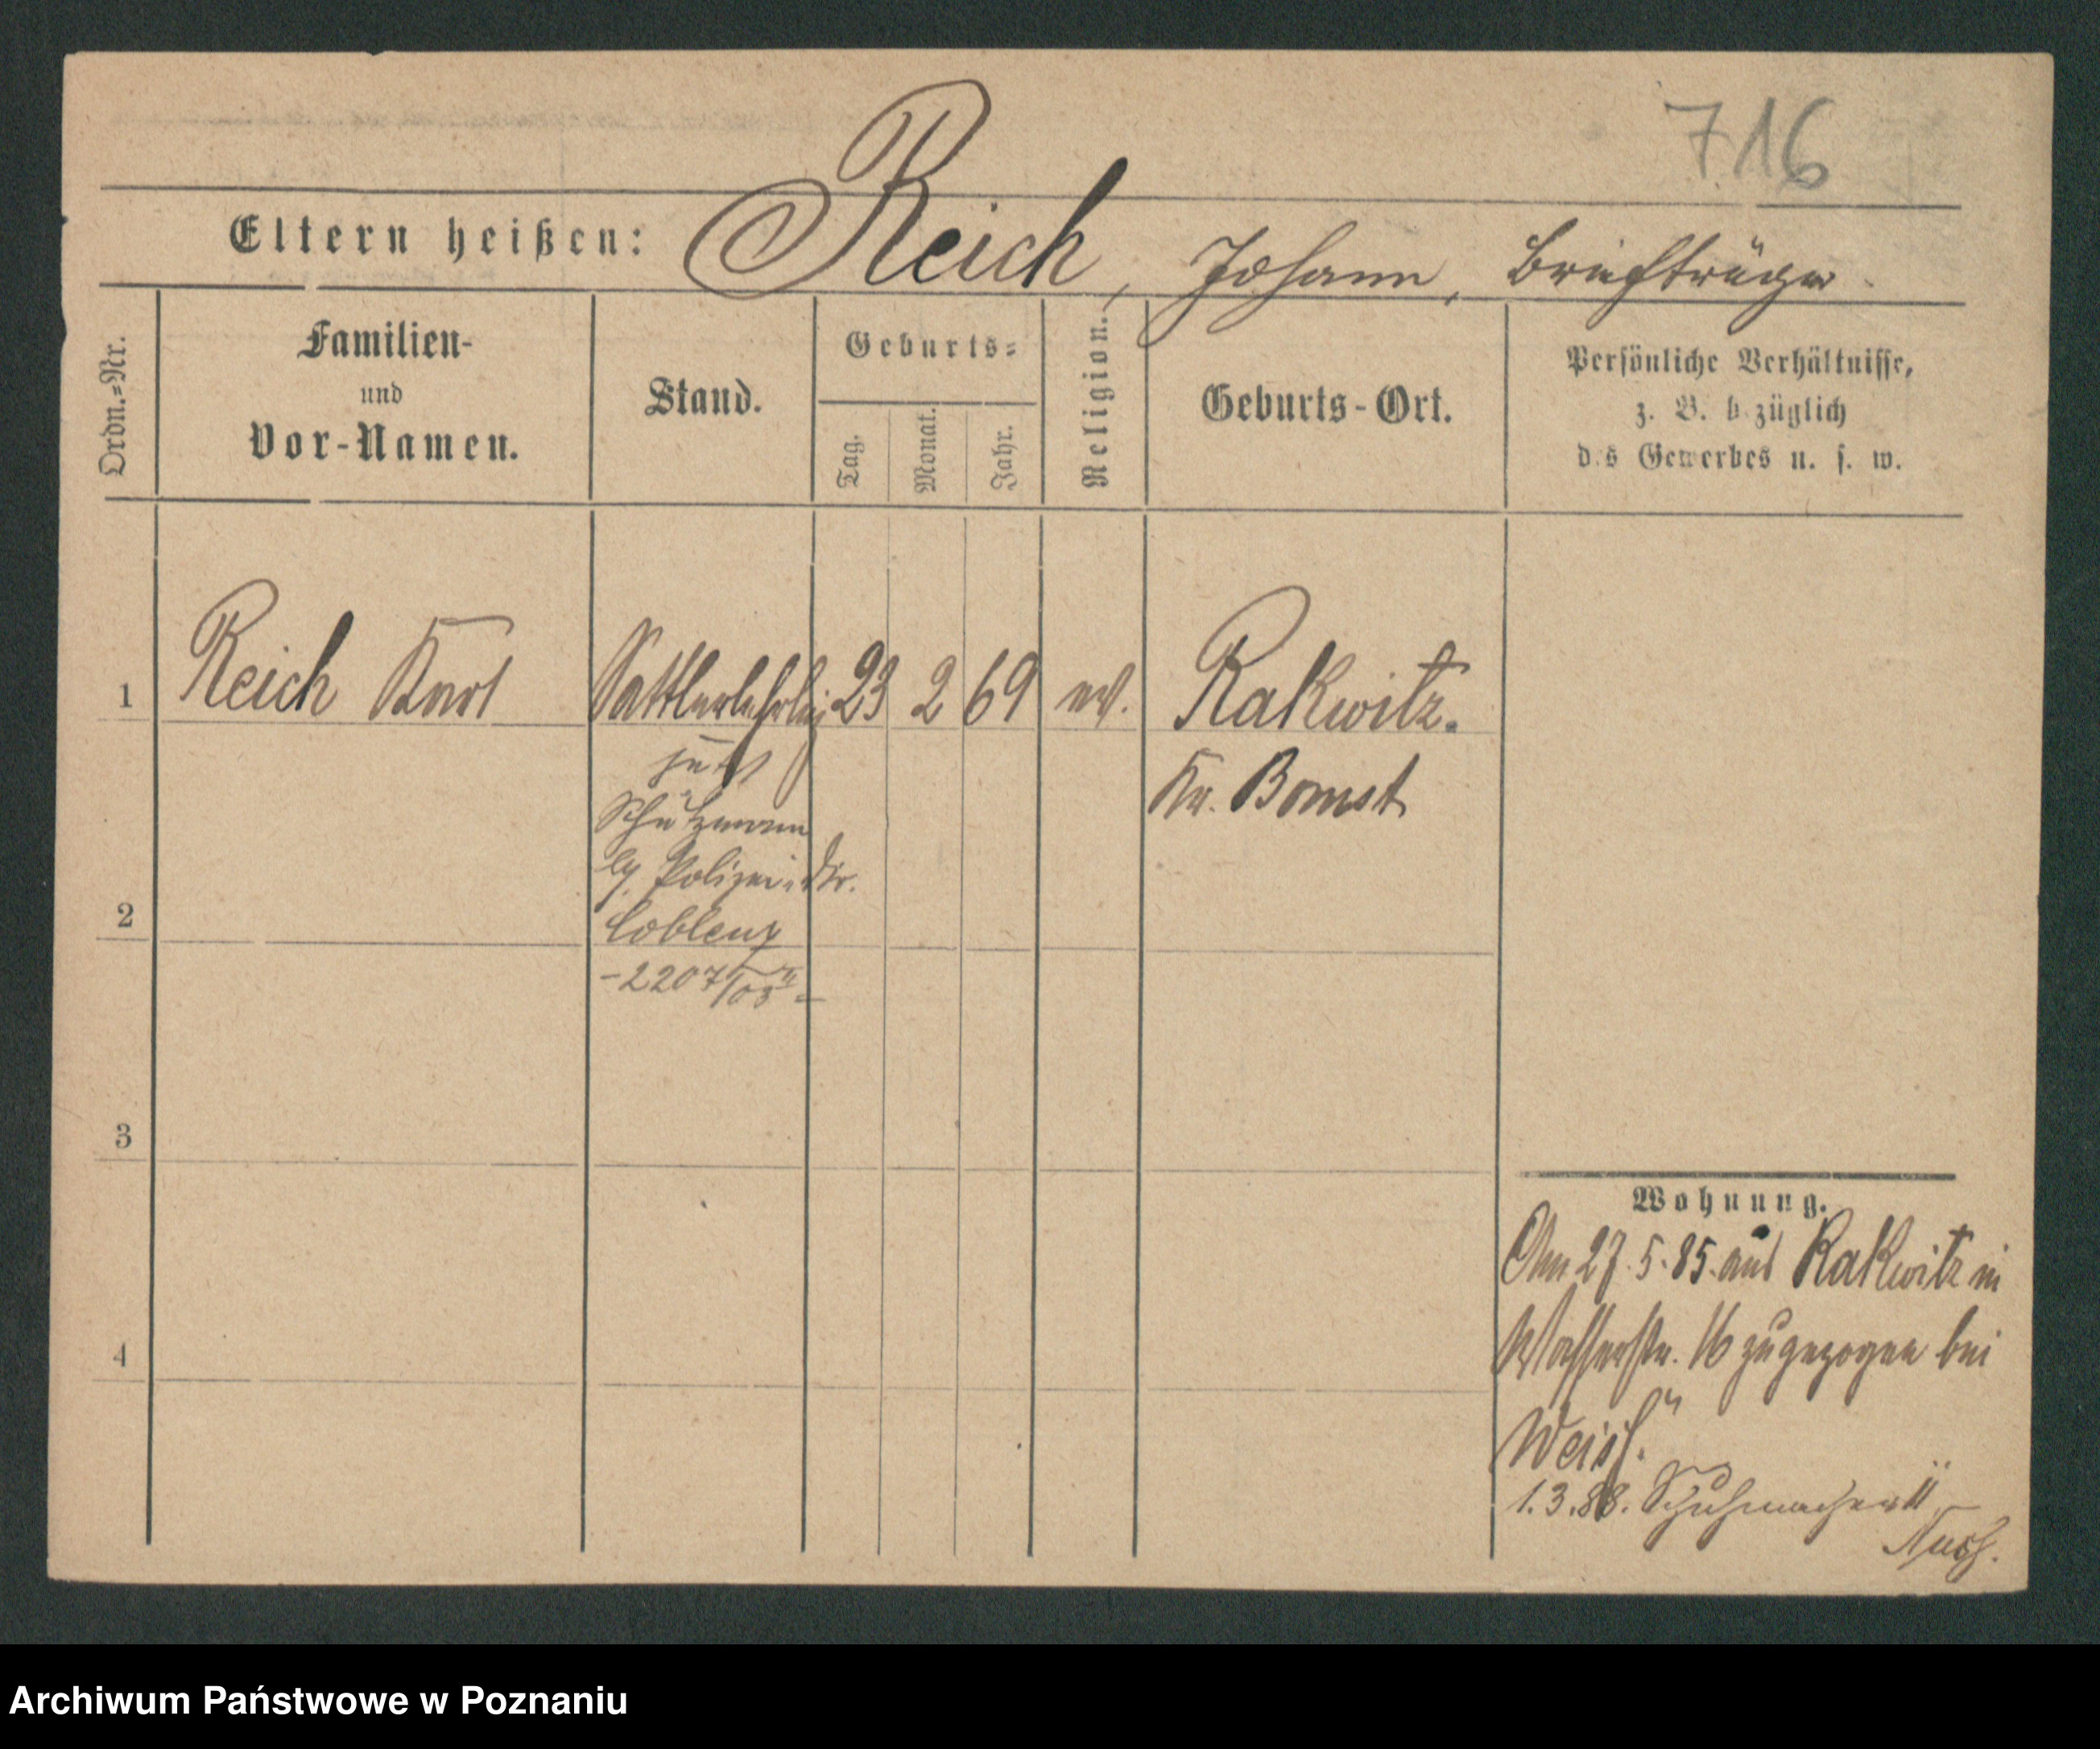 716
Eltern heißen: Reich, Johann, Briefträger.
Ordn.=Nr.
Familien-
und
Vor-Namen.
Stand.
Geburts=
Tag.
Monat.
Jahr.
Religion.
Geburts-Ort.
Persönliche Verhältnisse,
z. B. bezüglich
des Gewerbes u. s. w.
1 Reich Karl Sattlerlehrlg 23 2 69 ev. Rakwitz.
Kr. Bomst
jetzt
Schützmann
Polizei-Dir.
2
Coblenz
-2207/03 II-
3
4
Wohnung.
Am 27.5.85. aus Rakwitz in
Wasserstr. 16 zugezogen bei
Weiß.
1.3.88. Schuhmacher